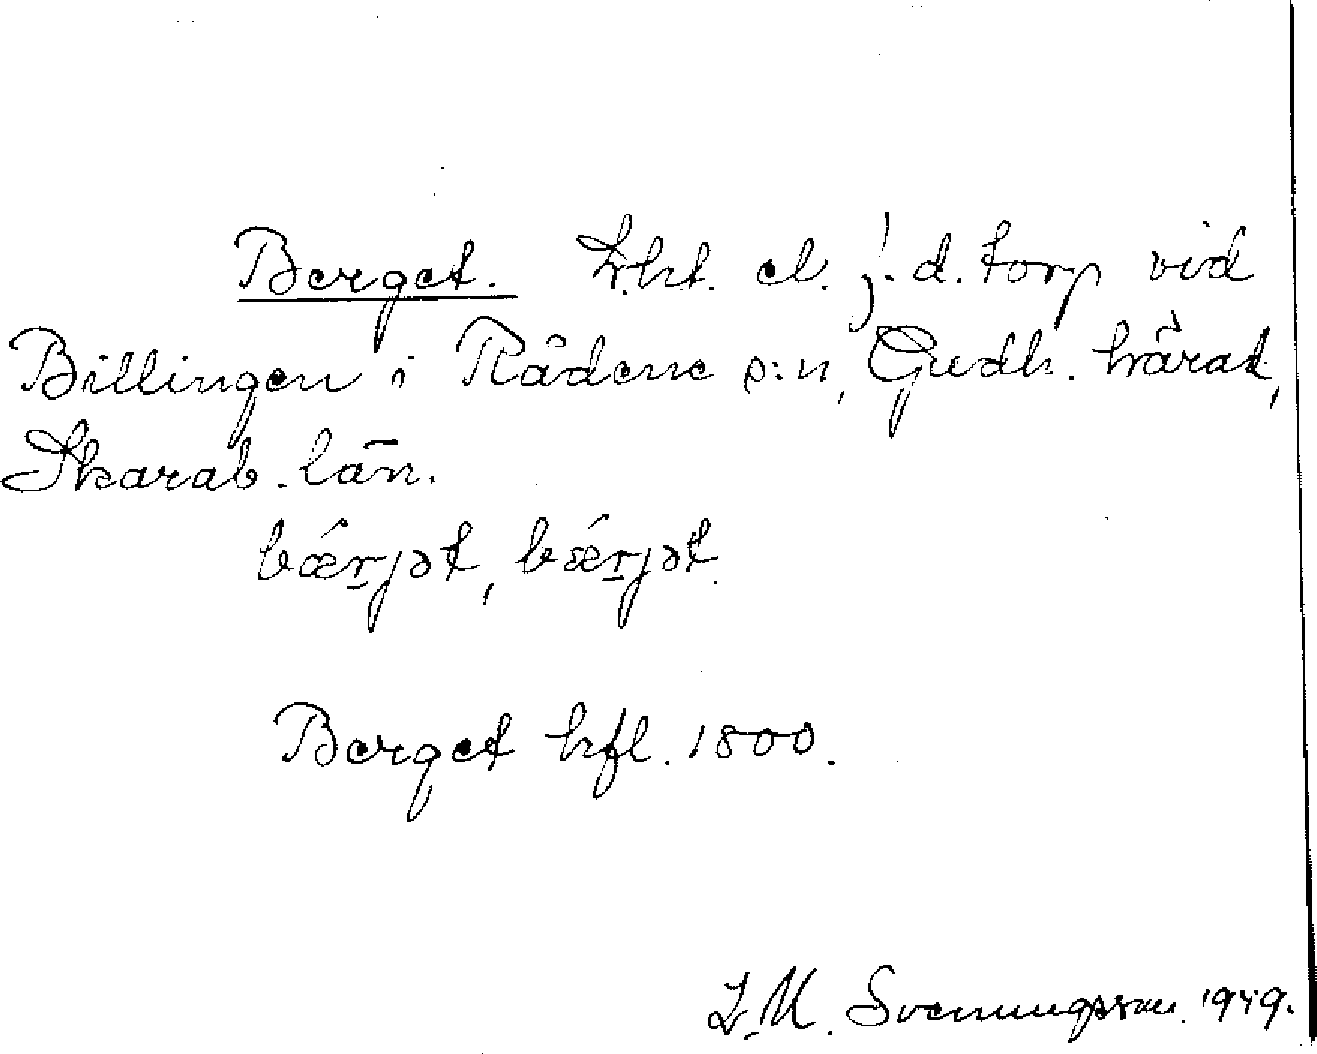 Berget. Lht. el. f.d. torp vid
Billingen i Rådene s:n, Gudh. härad,
Skarab. län.
bǽrjət, bǽrjət.
Berget hfl. 1800.
L.M. Svenungsson. 1949.